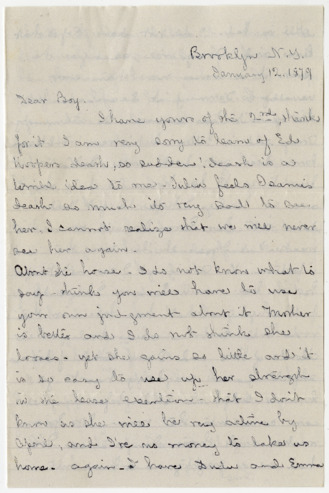 Brooklyn N.Y.
January 12, 1879
Dear Boy.
I have yours of the 2nd, thank
for it I am very sorry to learn of Ed
Hoopers death, so sudden! death is a
terrible idea to me. Julia feels
death so much, its very sad to see
her. I cannot realize that we will never
see her again.
About the horse. I do not know what to
say - think you will have to use
your own judgment about it. Mother
is better and I do not think she
looses - yet she gains so little and it
is so easy to use up her strength
in the least exertion - that I don't
know as she will be very active by
April, and I've no money to take us
home. again - I have and Emma